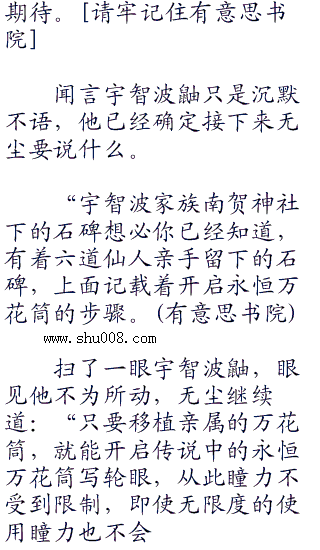 期待。[请牢记住有意思书
院]
闻言宇智波鼬只是沉默
不语，他已经确定接下来无
尘要说什么。
“宇智波家族南贺神社
下的石碑想必你已经知道，
有着六道仙人亲手留下的石
碑，上面记载着开启永恒万
花筒的步骤。(有意思书院)
www.shu008.com
扫了一眼宇智波鼬，眼
见他不为所动，无尘继续
道：“只要移植亲属的万花
筒，就能开启传说中的永恒
万花筒写轮眼，从此瞳力不
受到限制，即使无限度的使
用瞳力也不会